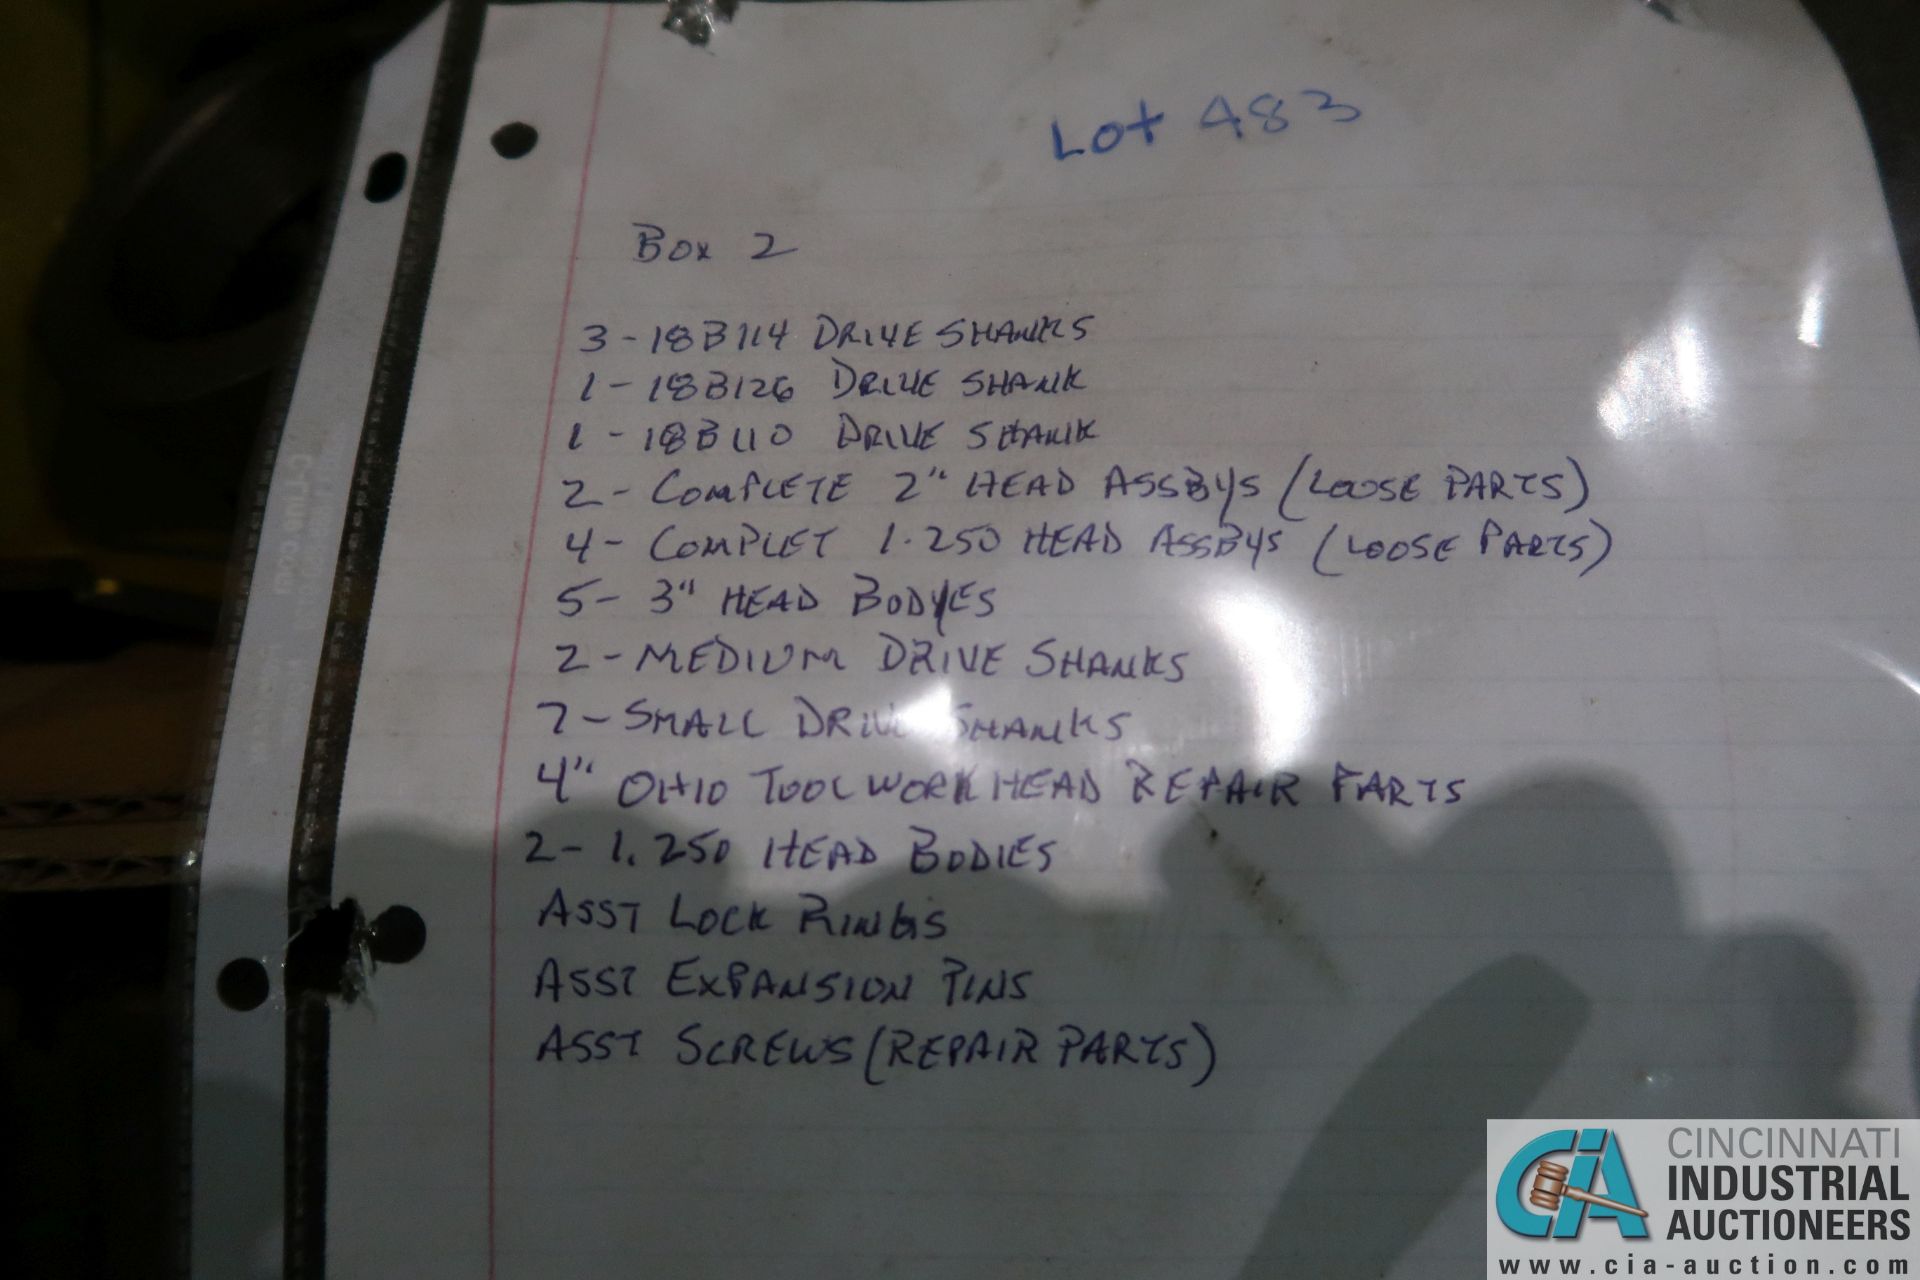 Lot 483
Box 2
3 - 18B114 DRIVE SHANKS
1 - 18B126 DRIVE SHANK
1 - 18B110 DRIVE SHANK
2 - COMPLETE 2" HEAD ASSBYS (LOOSE PARTS)
4 - COMPLET 1.250 HEAD ASSBYS (LOOSE PARTS)
5 - 3" HEAD BODYES
2 - MEDIUM DRIVE SHANKS
7 - SMALL DRIVE SHANKS
4" OHIO TOOLWORK HEAD REPAIR PARTS
2 - 1.250 HEAD BODIES
ASST LOCK RINGS
ASST EXPANSION PINS
ASST SCREWS (REPAIR PARTS)
C-Line.com
CIA CINCINNATI
INDUSTRIAL
AUCTIONEERS
www.cia-auction.com